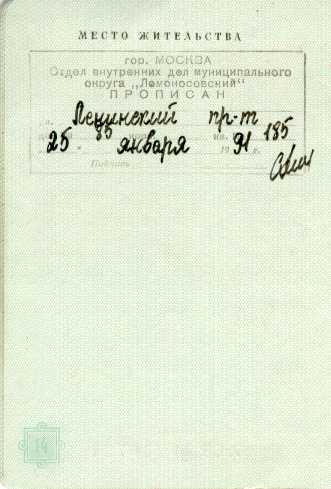 МЕСТО ЖИТЕЛЬСТВА
гор. МОСКВА
Отдел внутренних дел муниципального
округа „Ломоносовский"
ПРОПИСАН
Ленинский пр-т
85 185
25 января 91
19 г.
Подпись
14